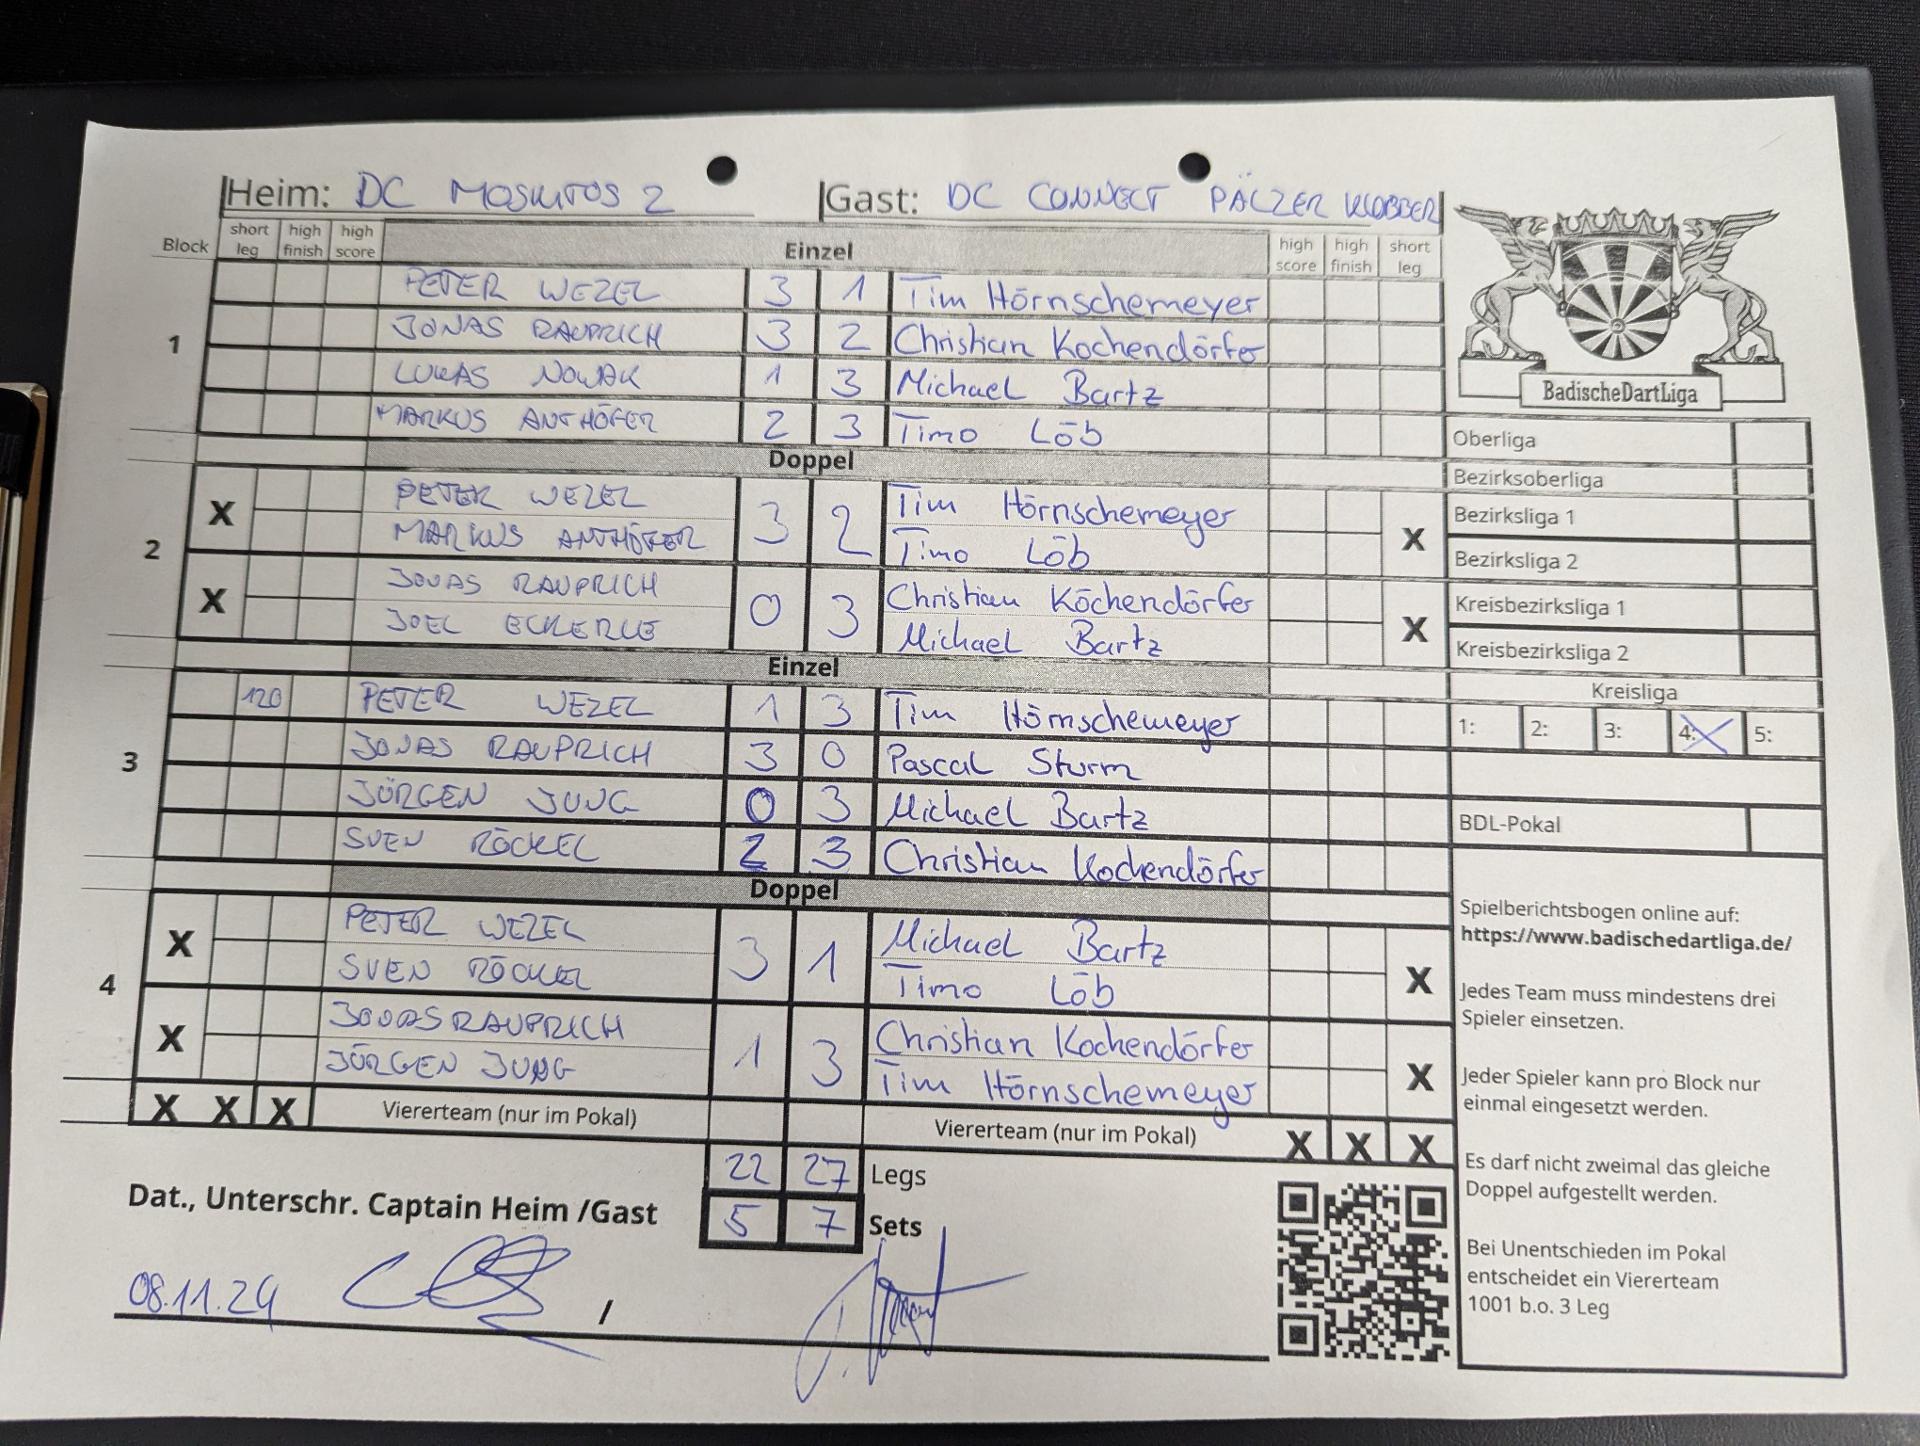 Heim: DC MOSKITOS 2 Gast: DC CONNECT PÄLZER KLOBBER
Block short leg high finish high score Einzel high score high finish short leg
1
PETER WEZEL 3 1 Tim Hörnschemeyer
JONAS RAUPRICH 3 2 Christian Kochendörfer
LUKAS NOWAK 1 3 Michael Bartz
MARKUS ANTHÖFER 2 3 Timo Löb
Doppel
2
X PETER WEZEL 3 2 Tim Hörnschemeyer X
MARKUS ANTHÖFER Timo Löb
X JONAS RAUPRICH 0 3 Christian Köchendörfer X
JOEL ECKERLE Michael Bartz
Einzel
3
120 PETER WEZEL 1 3 Tim Hörnschemeyer
JONAS RAUPRICH 3 0 Pascal Sturm
JÜRGEN JUNG 0 3 Michael Bartz
SVEN RÖCKEL 2 3 Christian Kochendörfer
Doppel
4
X PETER WEZEL 3 1 Michael Bartz X
SVEN RÖCKEL Timo Löb
X JONAS RAUPRICH 1 3 Christian Kochendörfer X
JÜRGEN JUNG Tim Hörnschemeyer
X X X Viererteam (nur im Pokal) Viererteam (nur im Pokal) X X X
22 27 Legs
5 7 Sets
Dat., Unterschr. Captain Heim /Gast
08.11.24 /
BadischeDartLiga
Oberliga
Bezirksoberliga
Bezirksliga 1
Bezirksliga 2
Kreisbezirksliga 1
Kreisbezirksliga 2
Kreisliga
1: 2: 3: 4: X 5:
BDL-Pokal
Spielberichtsbogen online auf:
https://www.badischedartliga.de/
Jedes Team muss mindestens drei
Spieler einsetzen.
Jeder Spieler kann pro Block nur
einmal eingesetzt werden.
Es darf nicht zweimal das gleiche
Doppel aufgestellt werden.
Bei Unentschieden im Pokal
entscheidet ein Viererteam
1001 b.o. 3 Leg